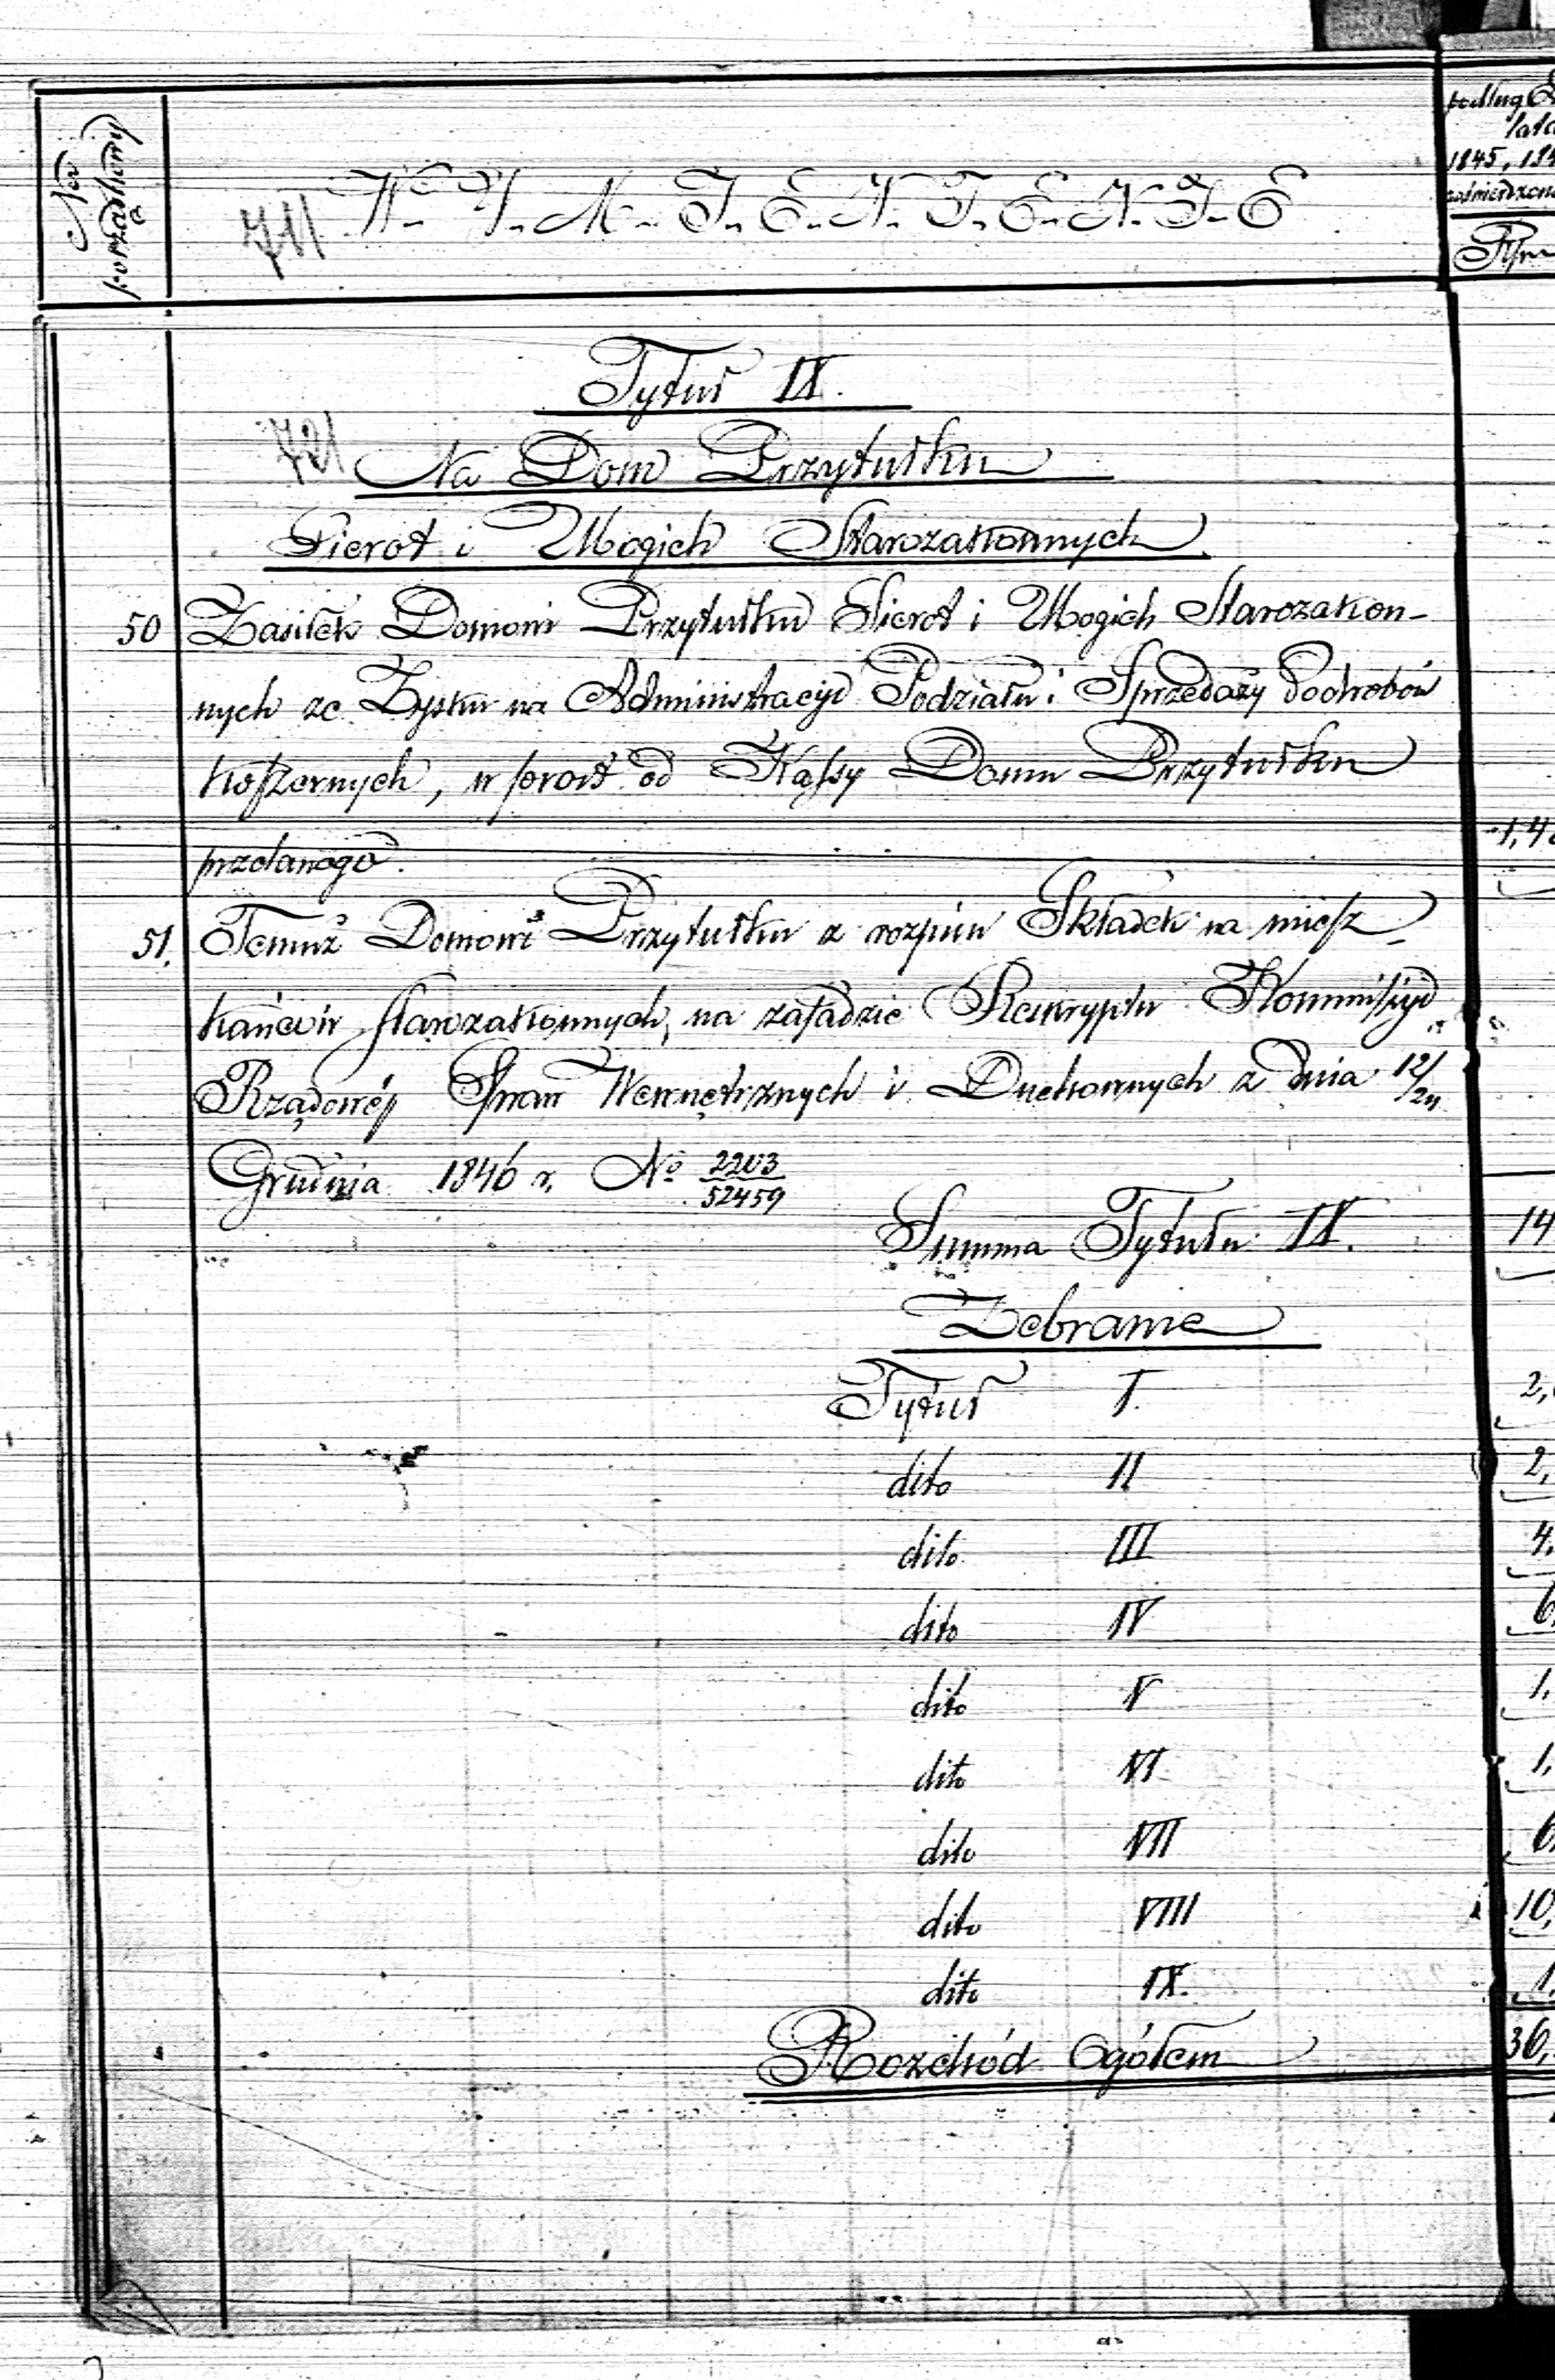 Ner porządkowy
W-Y-M-I-E-N-I-E-N-I-E
711
podług
lata
1845, 184
Tytuł IX.
721
Na Dom Przytułku
Sierot i Ubogich Starozakonnych
50 Zasiłek Domowi Przytułku Sierot i Ubogich Starozakon-
nych ze Zysku na Administracyi Podziału i Sprzedaży Podrobów
koszernych, w sporod od Kassy Domu Przytułku
przelanego.
1,4
51. Temuż Domowi Przytułku z rozpisu Składek na miesz-
kańców starozakonnych, na zasadzie Reskryptu Kommissyi
Rządowéj Spraw Wewnętrznych i Duchownych z dnia 12/24
Grudnia 1846 r. No 2203/52459
Summa Tytułu IX. 14
Zebranie
Tytuł I. 2,
dito II 2,
dito III 4.
dito IV 6
dito V 1.
dito VI 1.
dito VII 6
dito VIII 10,
dito IX. 1.
Rozchód Ogółem 36,